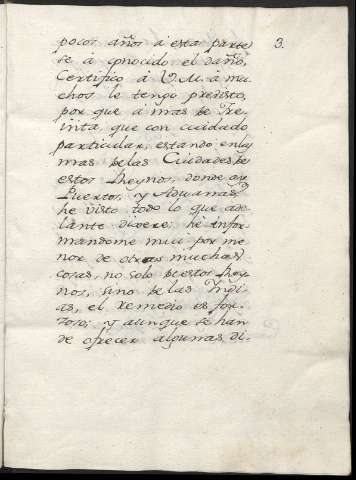 3.
pocos años á esta parte
se á conocido el daño,
Certifico á V.M. á mu
chos le tengo previsto,
por que á mas de Tre,
inta, que con cuidado
particular, estando en las
mas de las Ciudades de
estos Reynos, donde ay
Puertos, y Aduanas
he visto todo lo que ade
lante dixere; hé infor-
mandome mui por me
nor de otras muchas
cosas, no solo de estos Rey
nos, sino de las Yndi
as, el remedio es for-
zoso; y aunque se han
de ofrecer algunas di-